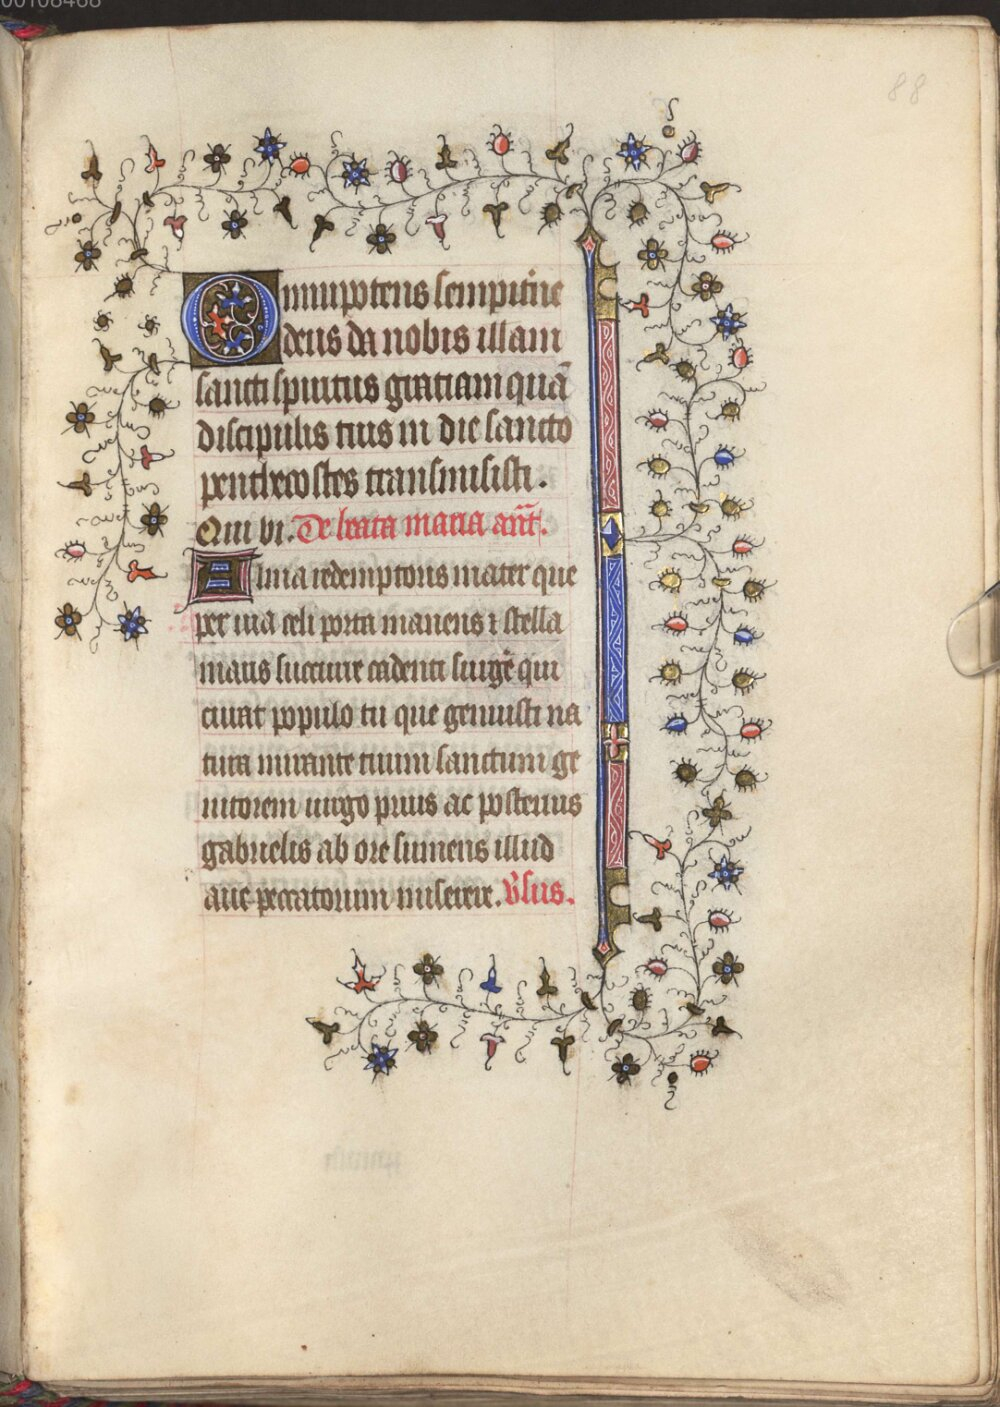 00108488
88
Omnipotens sempit̄ne
deus da nobis illam
sancti spiritus gratiam quā
discipulis tuis in die sancto
penthecostes transmisisti.
Qui vi. De beata maria ant̄.
Alma redemptoris mater que
per uia celi porta manens ⁊ stella
maris succurre cadenti surgē̄ qui
curat populo tu que genuisti na
tura mirante tuum sanctum ge
nitorem uirgo prius ac posterius
gabrielis ab ore sumens illud
aue peccatorum miserere. v̄sus.